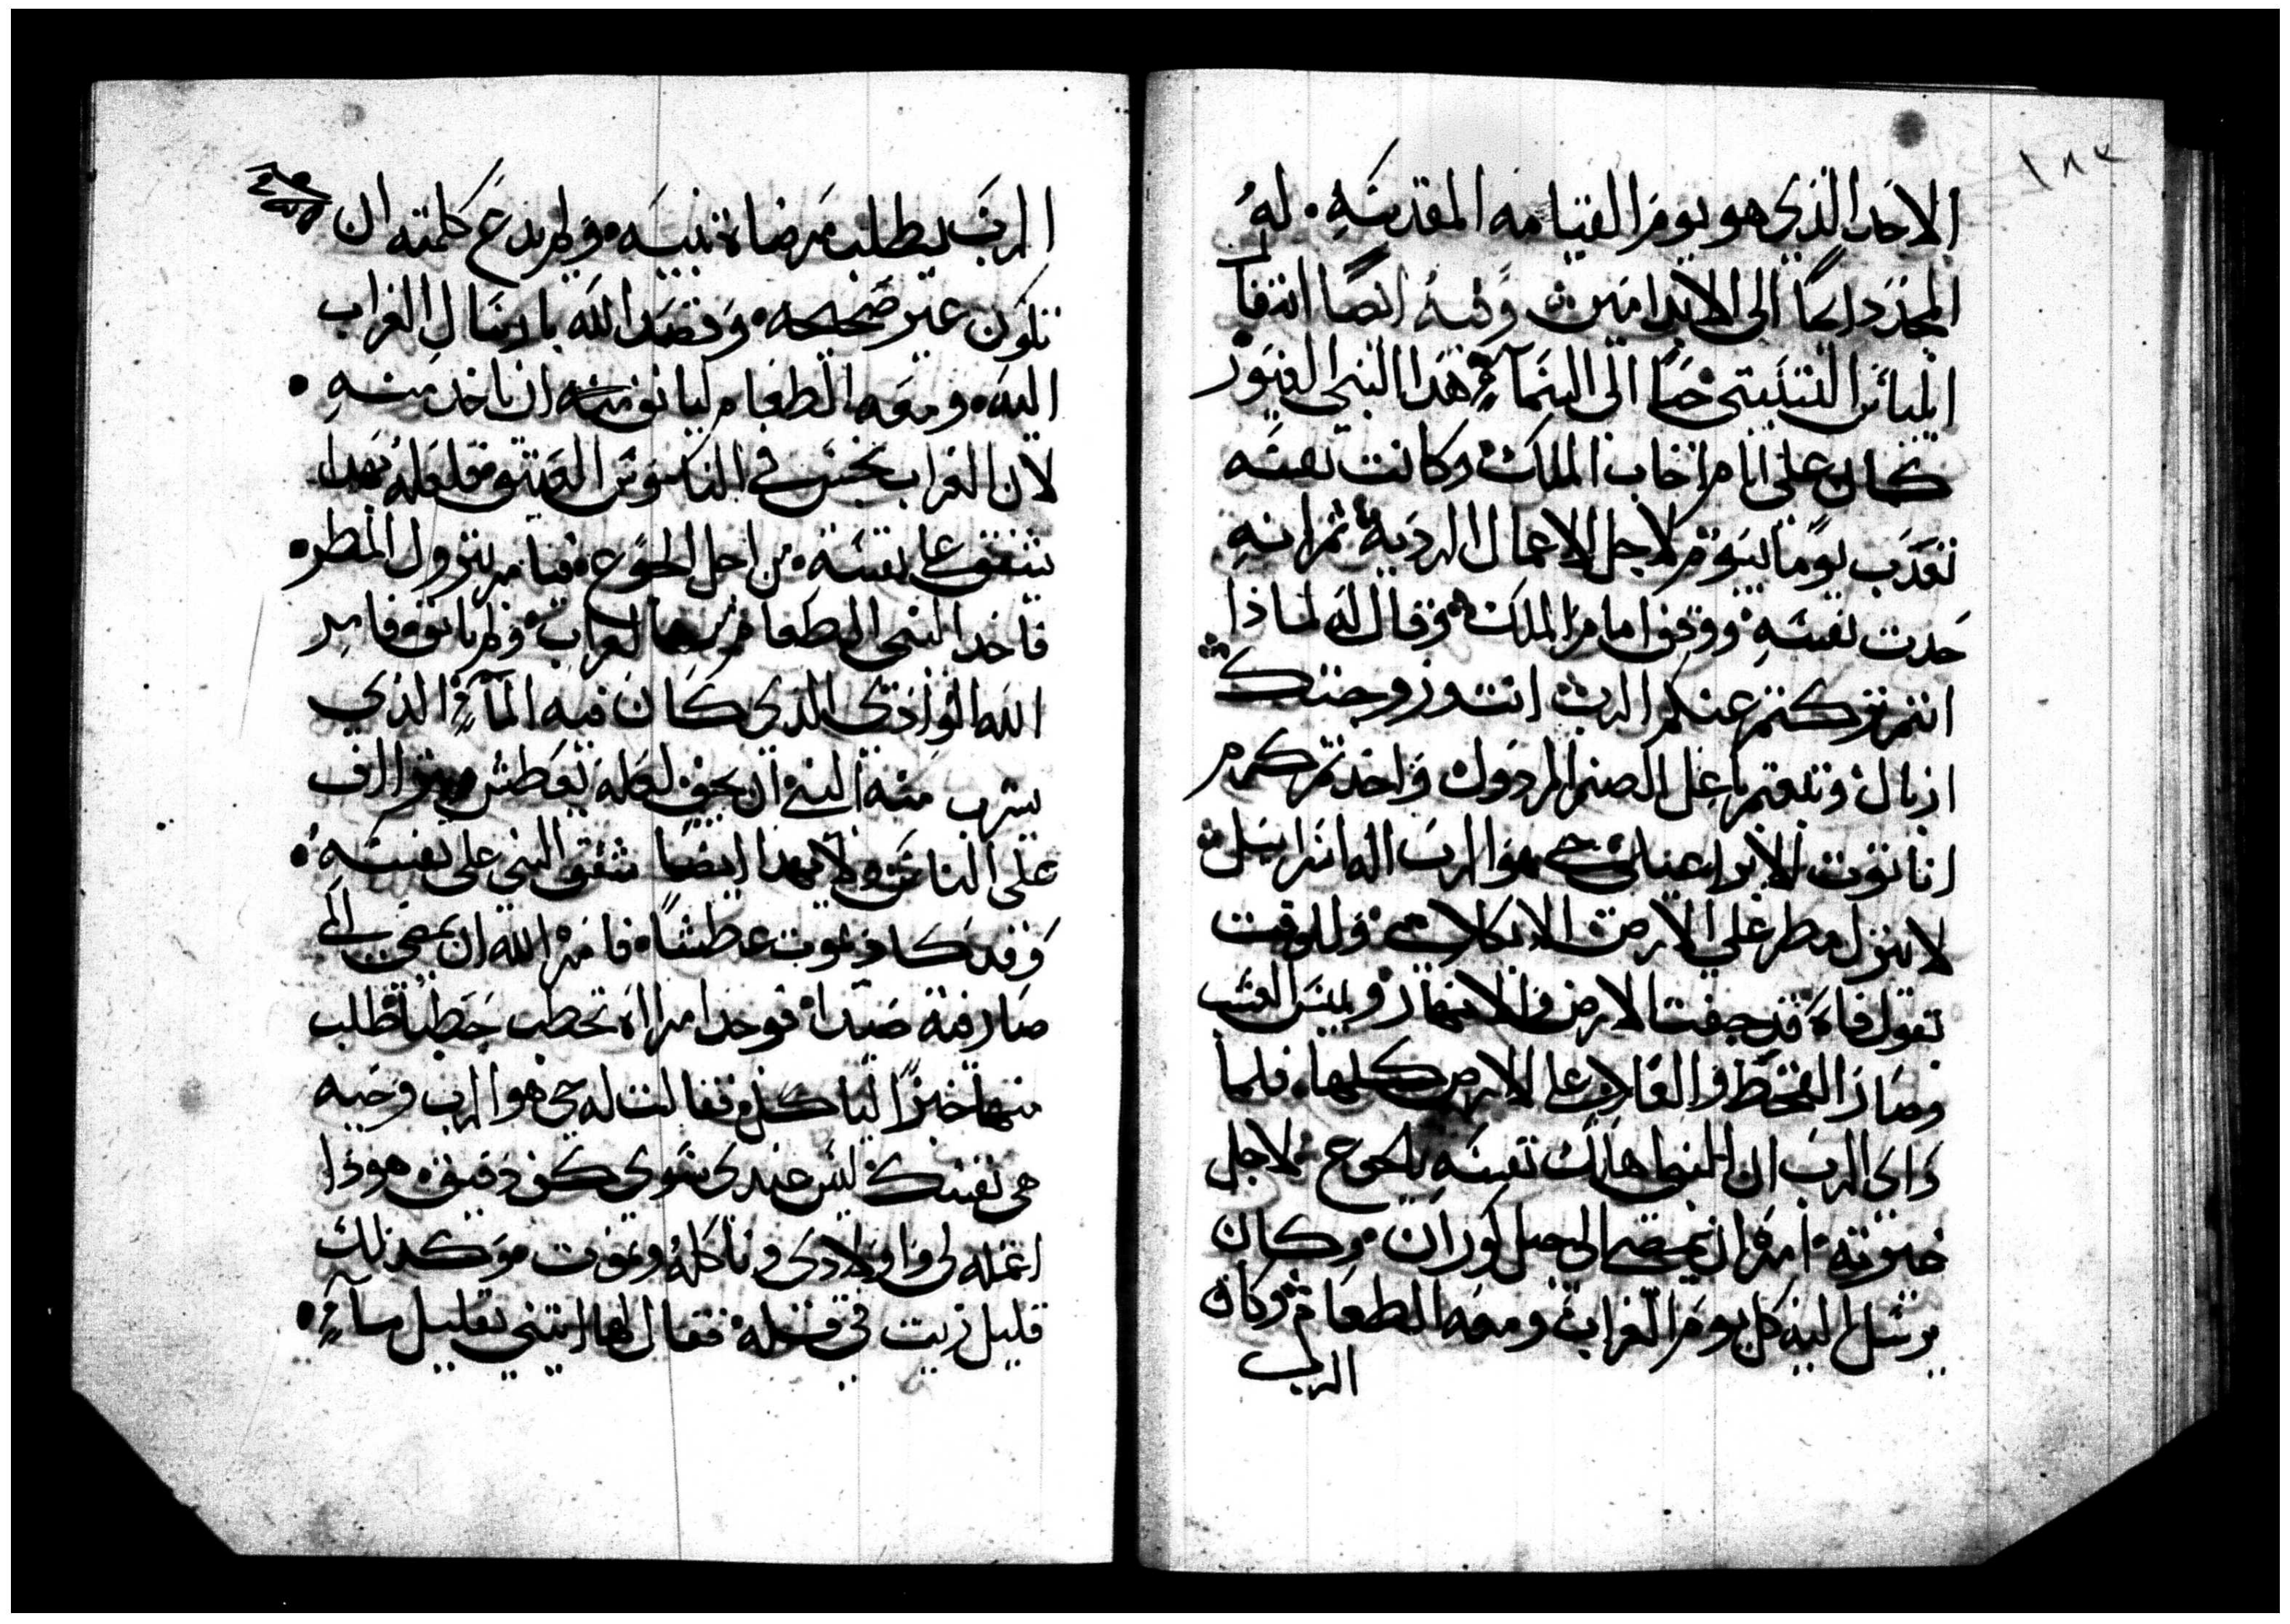 ١٨٢
الاحد الذي هو يوم القيامه المقدسه • له
المجد دايما الى الابد امين وفيه ايضا ارتفا
ايلياس التسبيتي حيا الى السما هدا النبي الغيور
كان على ايام اخاب الملك وكانت نفسه
تعدب يوما بيوم لاجل الاعمال الرديه ثم انه
حدت نفسه ووقف امام الملك وقال له لماذا
انتم تركتم عنكم الرب انت وزوجتك
ازبال وتبعتم باعل الصنم المردول واخدتم كرم
نابوت الابزراعيلي حي هو الرب اله اسرايل
لا ينزل مطر على الارض الا بكلامي وللوقت
بقول فاه قد جفت الارض والانهار ويبس العشب
وصار القحط والغلا على الارض كلها • فلما
راى الرب ان النبي هالك نفسه بالجوع لاجل
غيرته • امره ان يمضي الى جبل كوران • وكان
يرسل اليه كل يوم الغراب ومعه الطعام وكان
الرب
الرب يطلب مرضاة نبيه • ولم يدع كلمته ان
تكون غير صحيحه • وقصد الله بارسال الغراب
اليه • ومعه الطعام ليانف منه ان ياخد منه •
لان الغراب نجس في الناموس العتيق فلعله بهدا
يشفق على نفسه • من اجل الجوع • فيامر بنزول المطر •
فاخد النبي الطعام من الغراب • ولم يانف فامر
الله الوادي الدي كان فيه الماء الذي
يشرب منه النبي ان يجف لعله يعطش يتراف
على الناس ولا بهدا ايضا شفق النبي على نفسه •
وقد كاد يموت عطشا • فامره الله ان يمضي الى
صارفية صيدا • فوجد امراه تحطب حطبا فطلب
منها خبزا لياكل • فقالت له حي هو الرب وحيه
هي نفسك ليس عندي سوى كف دقيق • هوذا
اعمله لي واولادي وناكله ونموت • وكذلك
قليل زيت في قسله • فقال لها ايتني بقليل ماء •